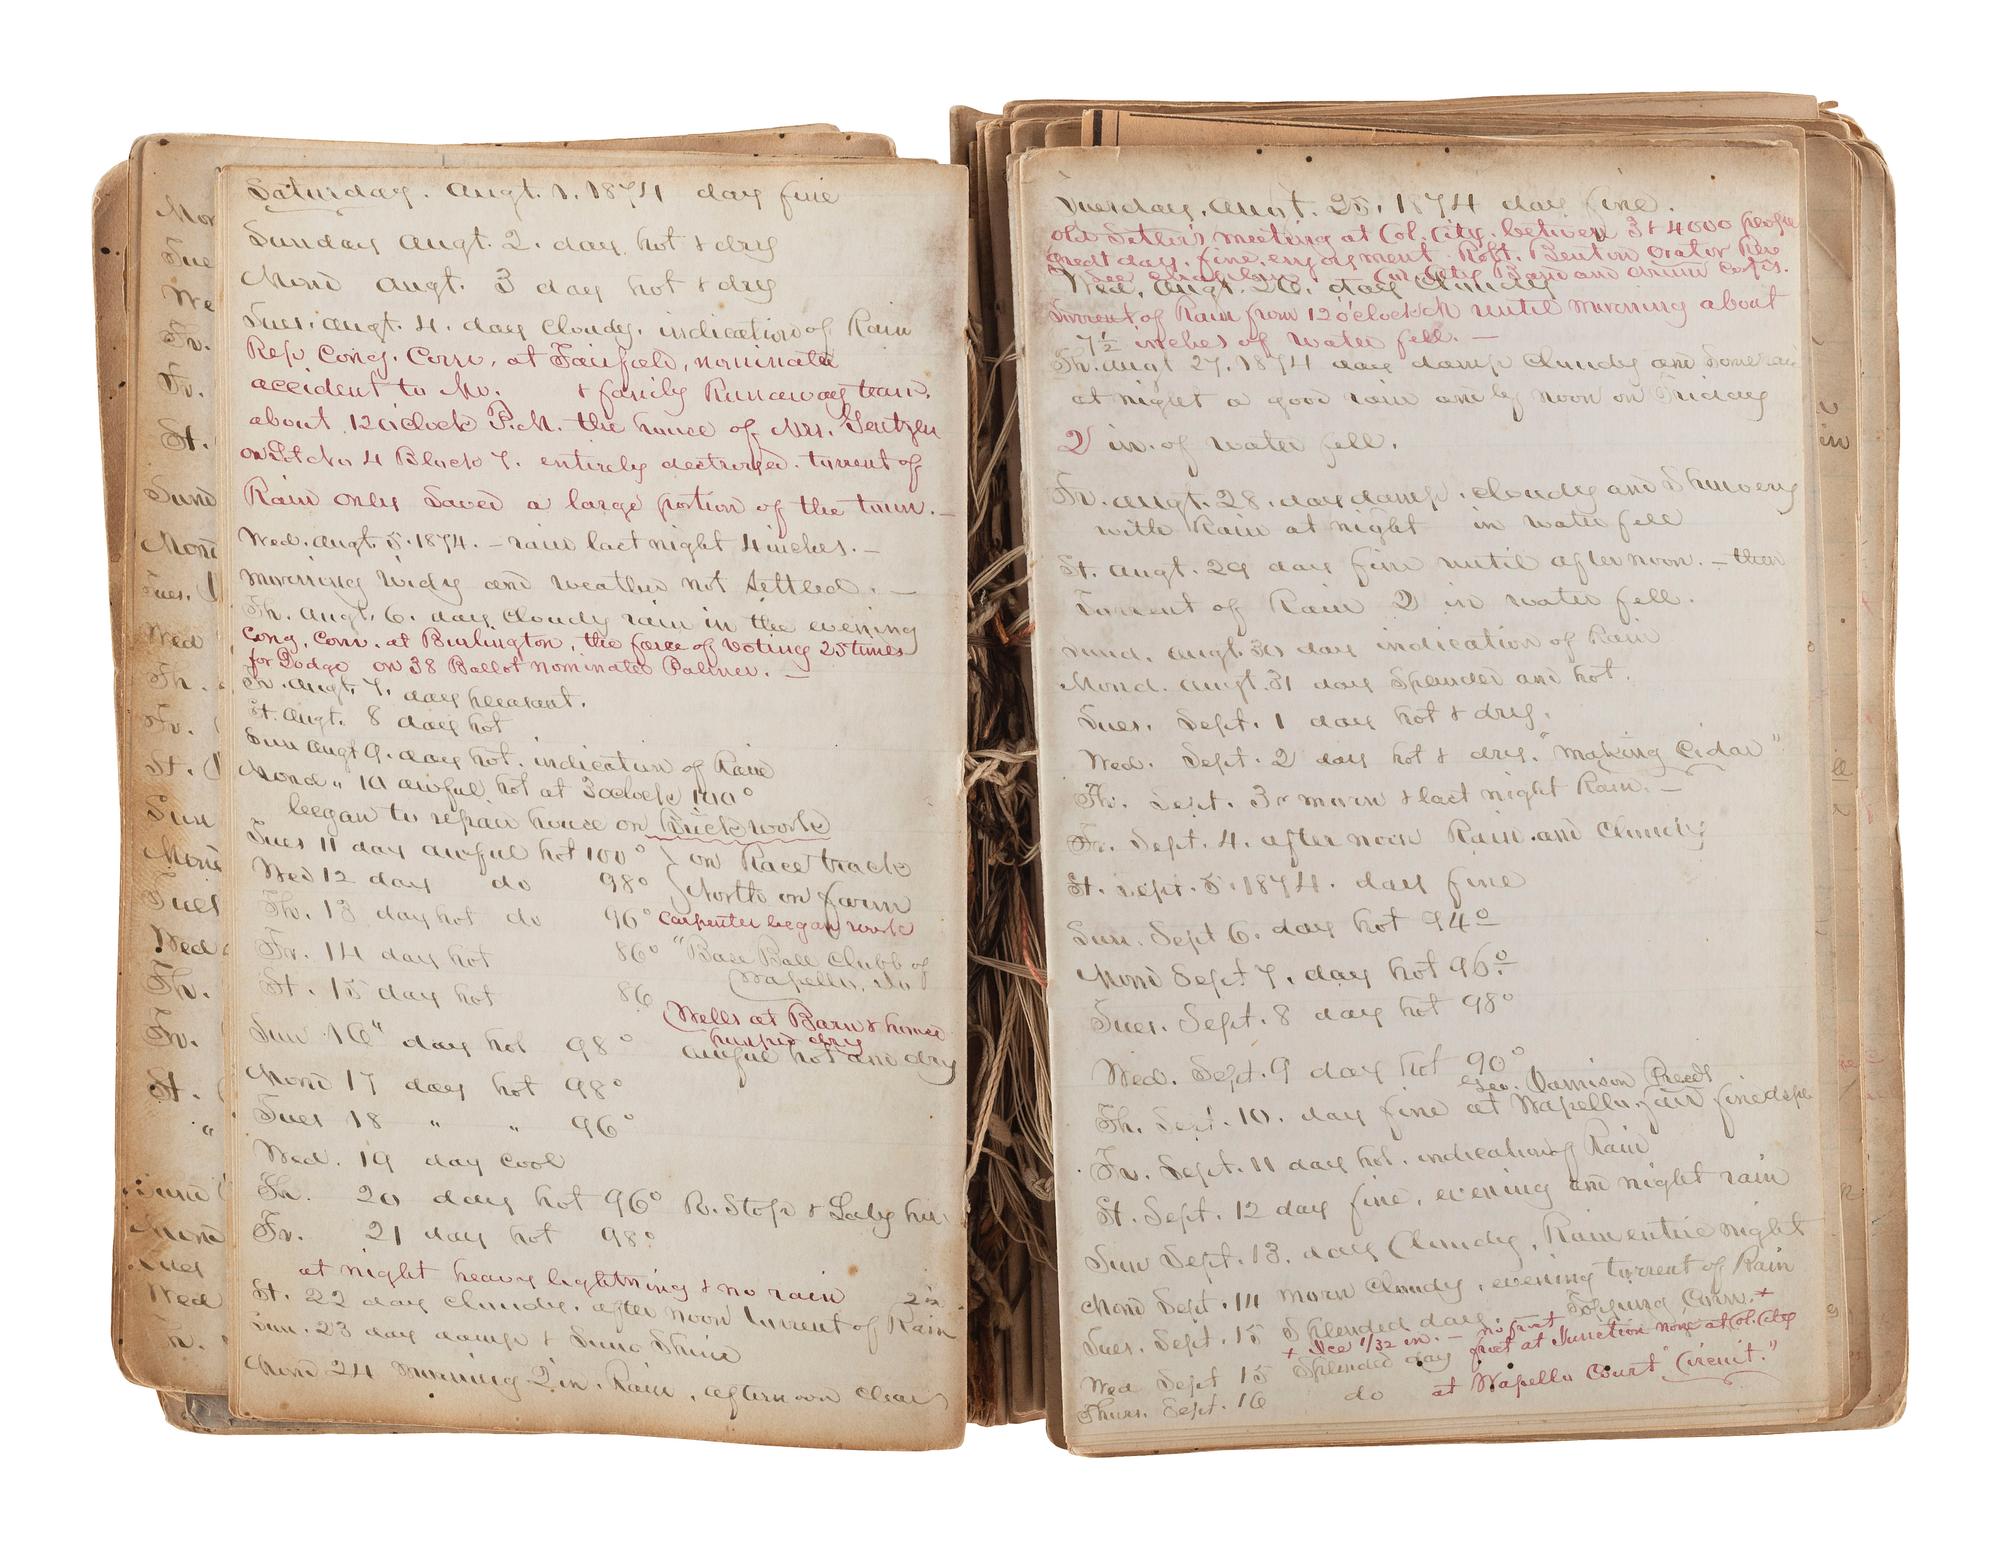 Saturday. Augt. 1. 1874 day fine
Sunday Augt. 2. day hot & dry
Mond Augt. 3 day hot & dry
Tues. Augt. 4. day Cloudy. indication of Rain
Rep. Cong. Conv. at Fairfield, nominate
accident to Mr. & family Runaway team.
about 12 o'clock P.M. the house of Mrs.
on Lot No 4 Block 7. entirely destroyed. turrent of
Rain only Saved a large portion of the town. —
Wed. Augt. 5. 1874. — rain last night 4 inches. —
morning Widy and weather not Settled. —
Th. Augt. 6. day Cloudy rain in the evening
Cong. Conv. at Burlington, the farce of Voting 25 times
for Dodge on 38 Ballot nominated Palmer. —
Fr. Augt. 7. day pleasant.
St. Augt. 8 day hot
Sun Augt 9. day hot. indication of Rain
Mond " 10 awful hot at 3 oclock 100°
began to repair house on Brick work
Tues 11 day awful hot 100° on Race track
Wed 12 day do 98° North on farm
Th. 13 day hot do 96° Carpenter began work
Fr. 14 day hot 86° "Base Ball Clubb of
Wapello, Io
St. 15 day hot 86
Wells at Barn & home
pumped dry
Sun 16" day hot 98° awful hot and dry
Mond 17 day hot 98°
Tues 18 " " 96°
Wed. 19 day Cool
Th. 20 day hot 96° R. Stop & Lady
Fr. 21 day hot 98°
at night heavy lightning & no rain
St. 22 day cloudy. after noon turrent of Rain
Sun. 23 day damp & Suno Shine
Mond 24 morning 2 in. Rain, afternoon clear
Tuesday, Augt. 25, 1874 day fine.
old Setler's meeting at Col. City. between 3 & 4000 people
great day, fine, enjoyment. Robt. Benton Orator
City Band and drum Corps.
Wed, Augt. 26. day Cloudy
Turrent of Rain from 12 o'clock until morning about
7 1/2 inches of water fell. —
Th. Augt 27. 1874 day damp Cloudy and Some rain
at night a good rain and by noon on Friday
2 in. of water fell.
Fr. Augt. 28. day damp. Cloudy and Showery
with Rain at night in water fell
St. Augt. 29 day fine until afternoon. — then
Turrent of Rain 2 in water fell.
Sund. Augt. 30 day indication of Rain
Mond. Augt. 31 day Splended and hot.
Tues. Sept. 1 day hot & dry.
Wed. Sept. 2 day hot & dry. "making Cidar"
Th. Sept. 3 morn & last night Rain. —
Fr. Sept. 4. after noon Rain and Cloudy
St. Sept. 5. 1874. day fine
Sun. Sept 6. day hot 94°
Mond Sept 7. day hot 96°
Tues. Sept. 8 day hot 98°
Wed. Sept. 9 day hot 90°
Geo. Reeds
Th. Sept. 10. day fine at Wapello, fair
Fr. Sept. 11 day hot. indication of Rain
St. Sept. 12 day fine, evening and night rain
Sun Sept. 13. day Cloudy, Rain entire night
Mond Sept. 14 morn Cloudy, evening turrent of Rain
Tues. Sept. 15 Splended day. Corn. +
+ Ice 1/32 in. — no frost
frost at Junction none at Col. City
Wed Sept 15 Splended day
at Wapello Court "Circuit."
Thurs. Sept. 16 do